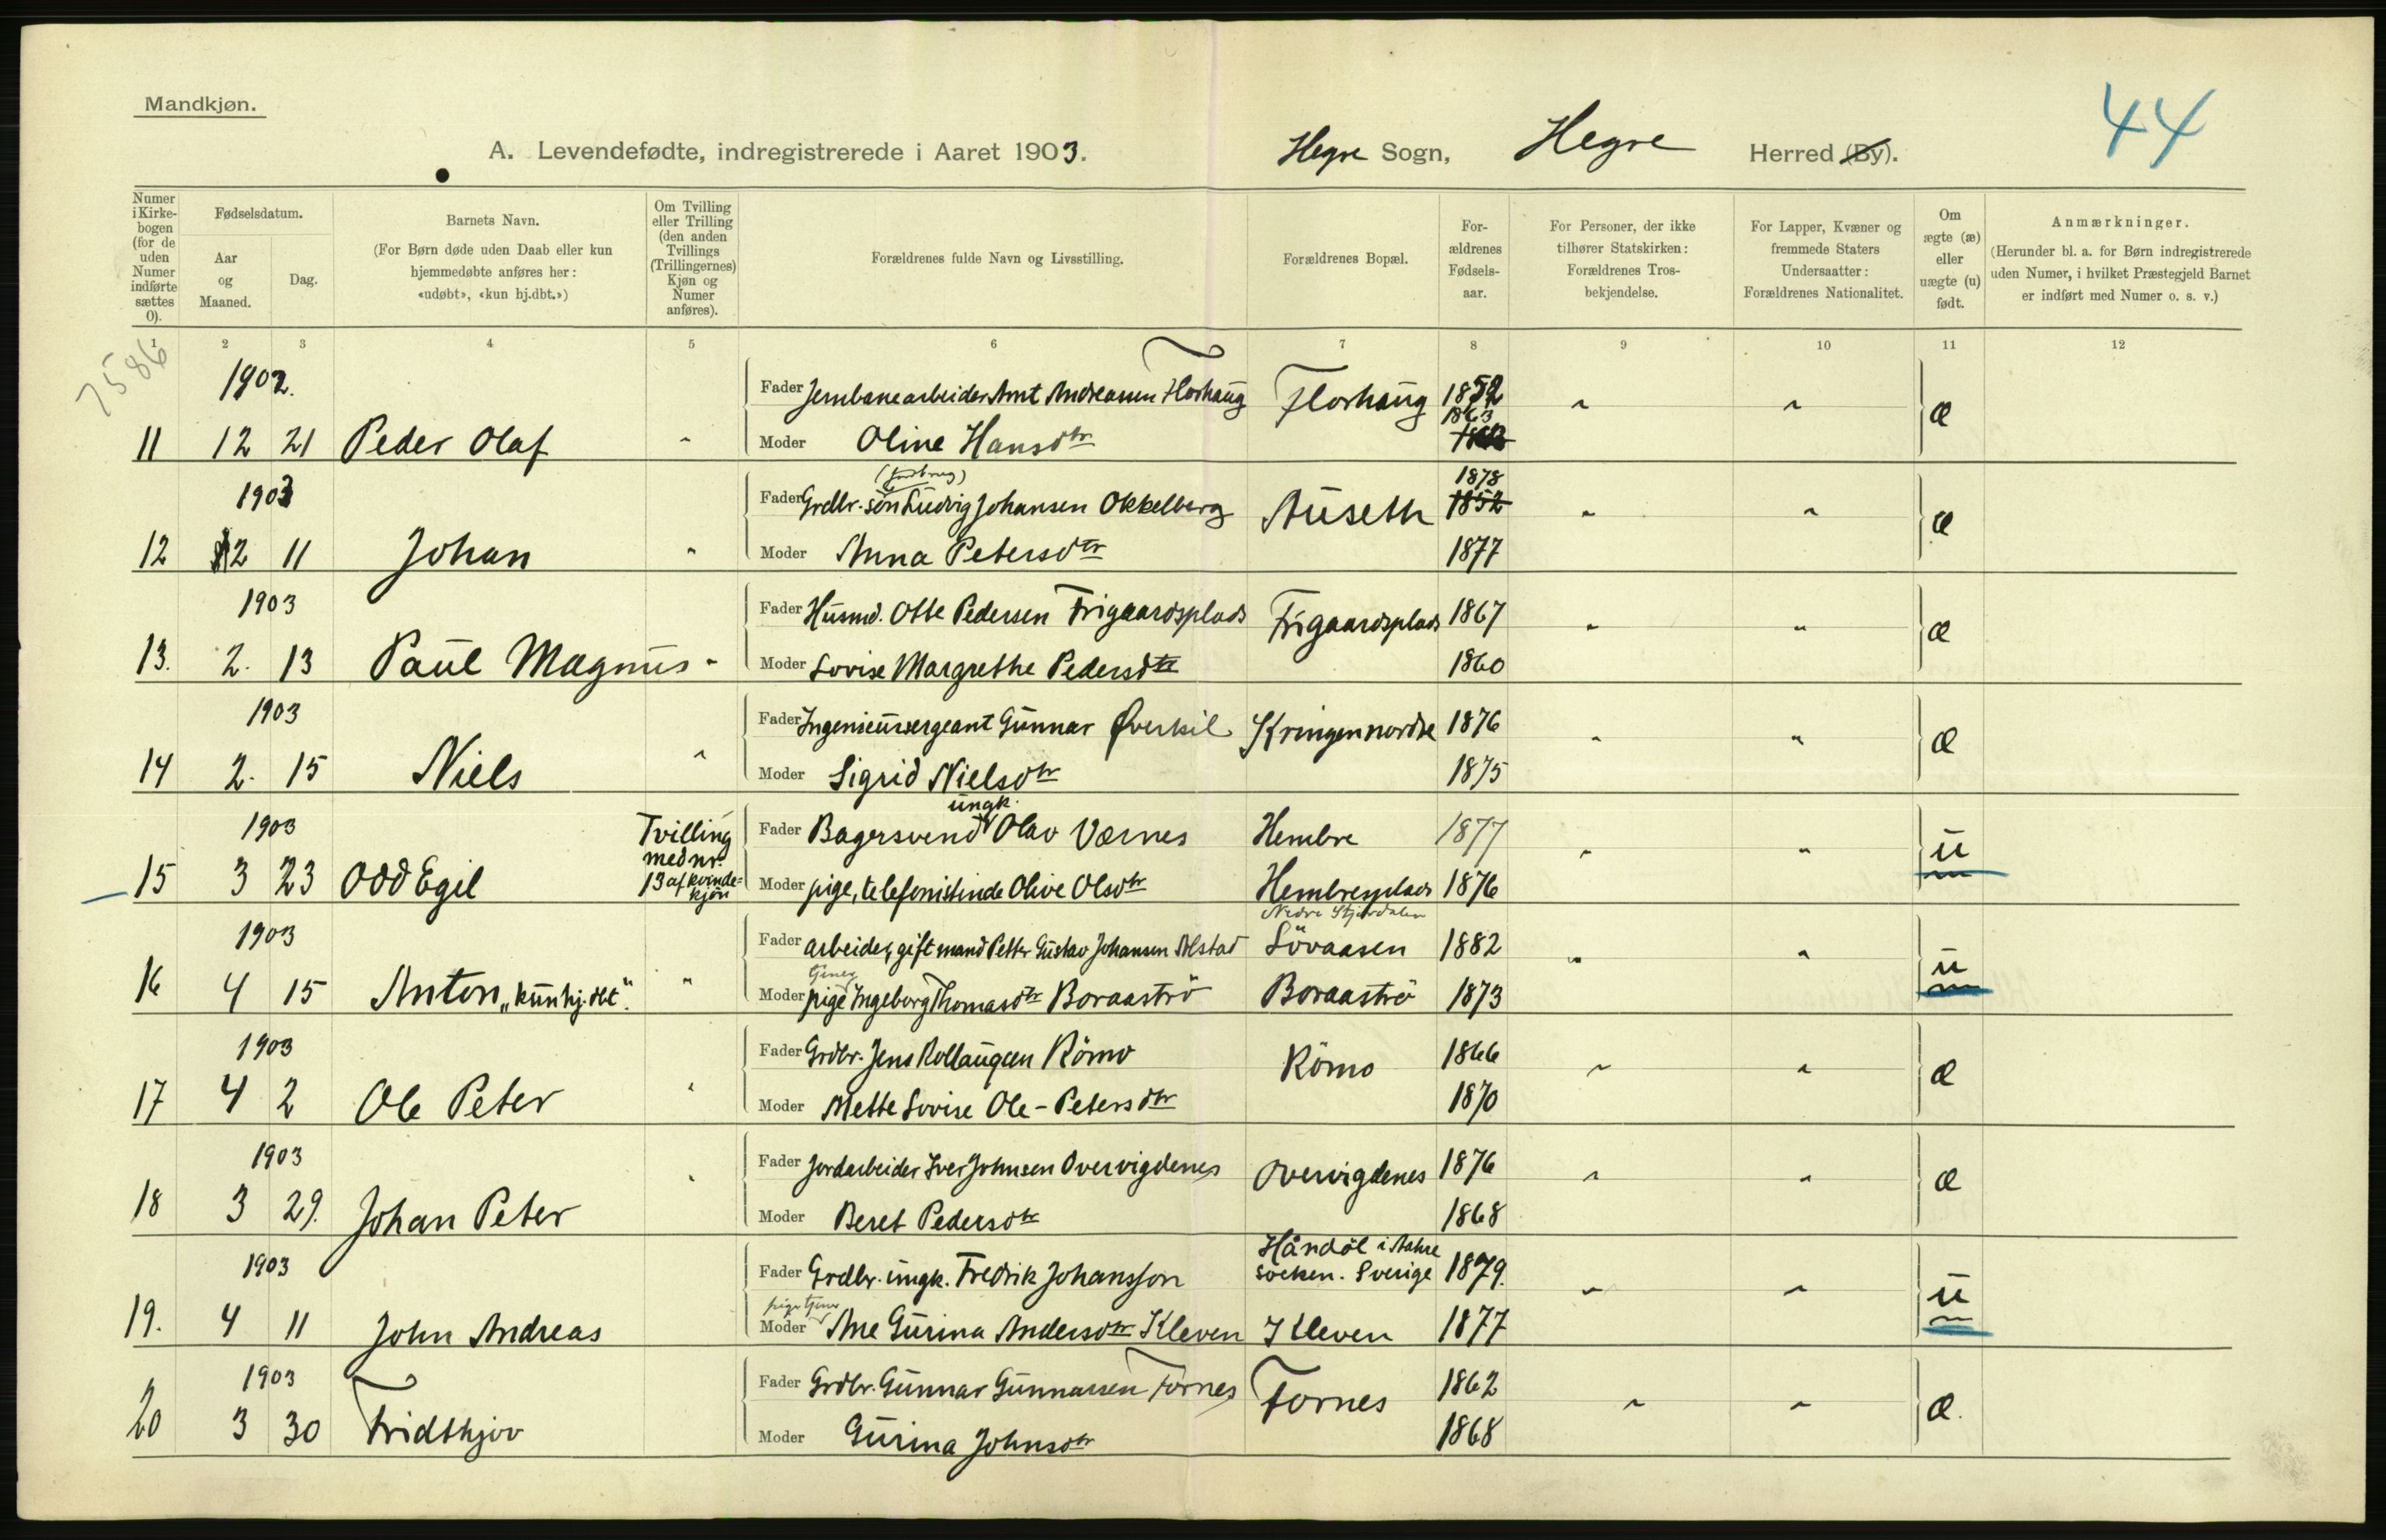 Mandkjøn.
44
A. Levendefødte, indregistrerede i Aaret 1903. Hegre Sogn, Hegre Herred (By).
Numer i Kirkebogen (for de uden Numer indførte sættes 0).
Fødselsdatum.
Aar og Maaned.
Dag.
Barnets Navn.
(For Børn døde uden Daab eller kun hjemmedøbte anføres her: «udøbt», «kun hj.dbt.»)
Om Tvilling eller Trilling (den anden Tvillings (Trillingernes) Kjøn og Numer anføres).
Forældrenes fulde Navn og Livsstilling.
Forældrenes Bopæl.
Forældrenes Fødselsaar.
For Personer, der ikke tilhører Statskirken: Forældrenes Trosbekjendelse.
For Lapper, Kvæner og fremmede Staters Undersaatter: Forældrenes Nationalitet.
Om ægte (æ) eller uægte (u) født.
Anmærkninger.
(Herunder bl. a. for Børn indregistrerede uden Numer, i hvilket Præstegjeld Barnet er indført med Numer o. s. v.)
1 2 3 4 5 6 7 8 9 10 11 12
7586
1902. Fader Jernbanearbeider Arnt Andreasen Florhaug Florhaug 1852
11 12 21 Peder Olaf " Moder Oline Hansdtr 1863 " " æ
1903 Fader Grdbr. søn Ludvig Johansen Okkelberg Auseth 1878 1852
12 2 11 Johan " Moder Anna Petersdtr 1877 " " æ
1903 Fader Husmd. Otte Pedersen Frigaardsplads Frigaardsplads 1867
13. 2. 13 Paul Magnus " Moder Lovise Margrethe Pedersdtr 1860 " " æ
1903 Fader Ingenieursergeant Gunnar Øverkil Kringen nordre 1876
14 2. 15 Niels " Moder Sigrid Nielsdtr 1875 " " æ
1903 Tvilling med nr. 13 af kvindekjøn Fader Bagersvend ungk. Olav Værnes Hembre 1877
15 3 23 Odd Egil Moder pige, telefonistinde Olive Olsdtr Hembresplads 1876 " " u
Nedre Stjørdalen
1903 Fader arbeider, gift mand Petter Gustav Johansen Alstad Lövaasen 1882
16 4 15 Anton „kun hj. dbt". " Moder tjener pige Ingeborg Thomasdtr Boraaströ Boraaströ 1873 " " u
1903 Fader Grdbr. Jens Rollaugsen Römo Römo 1866
17 4 2 Ole Peter " Moder Mette Lovise Ole-Petersdtr 1870 " " æ
1903 Fader Jordarbeider Iver Johnsen Overvigdenes Overvigdenes 1876
18 3 29. Johan Peter " Moder Beret Pedersdtr 1868 " " æ
1903 Fader Grdbr. ungk. Fredrik Johansson Håndöl i Aahre socken. Sverige 1879.
19. 4 11 John Andreas Moder pige tjener Ane Gurina Andersdtr Kleven Kleven 1877 " " u
1903 Fader Grdbr. Gunnar Gunnarsen Fornes Fornes 1862
20 3 30 Fridthjov Moder Gurina Johnsdtr 1868 " " æ.